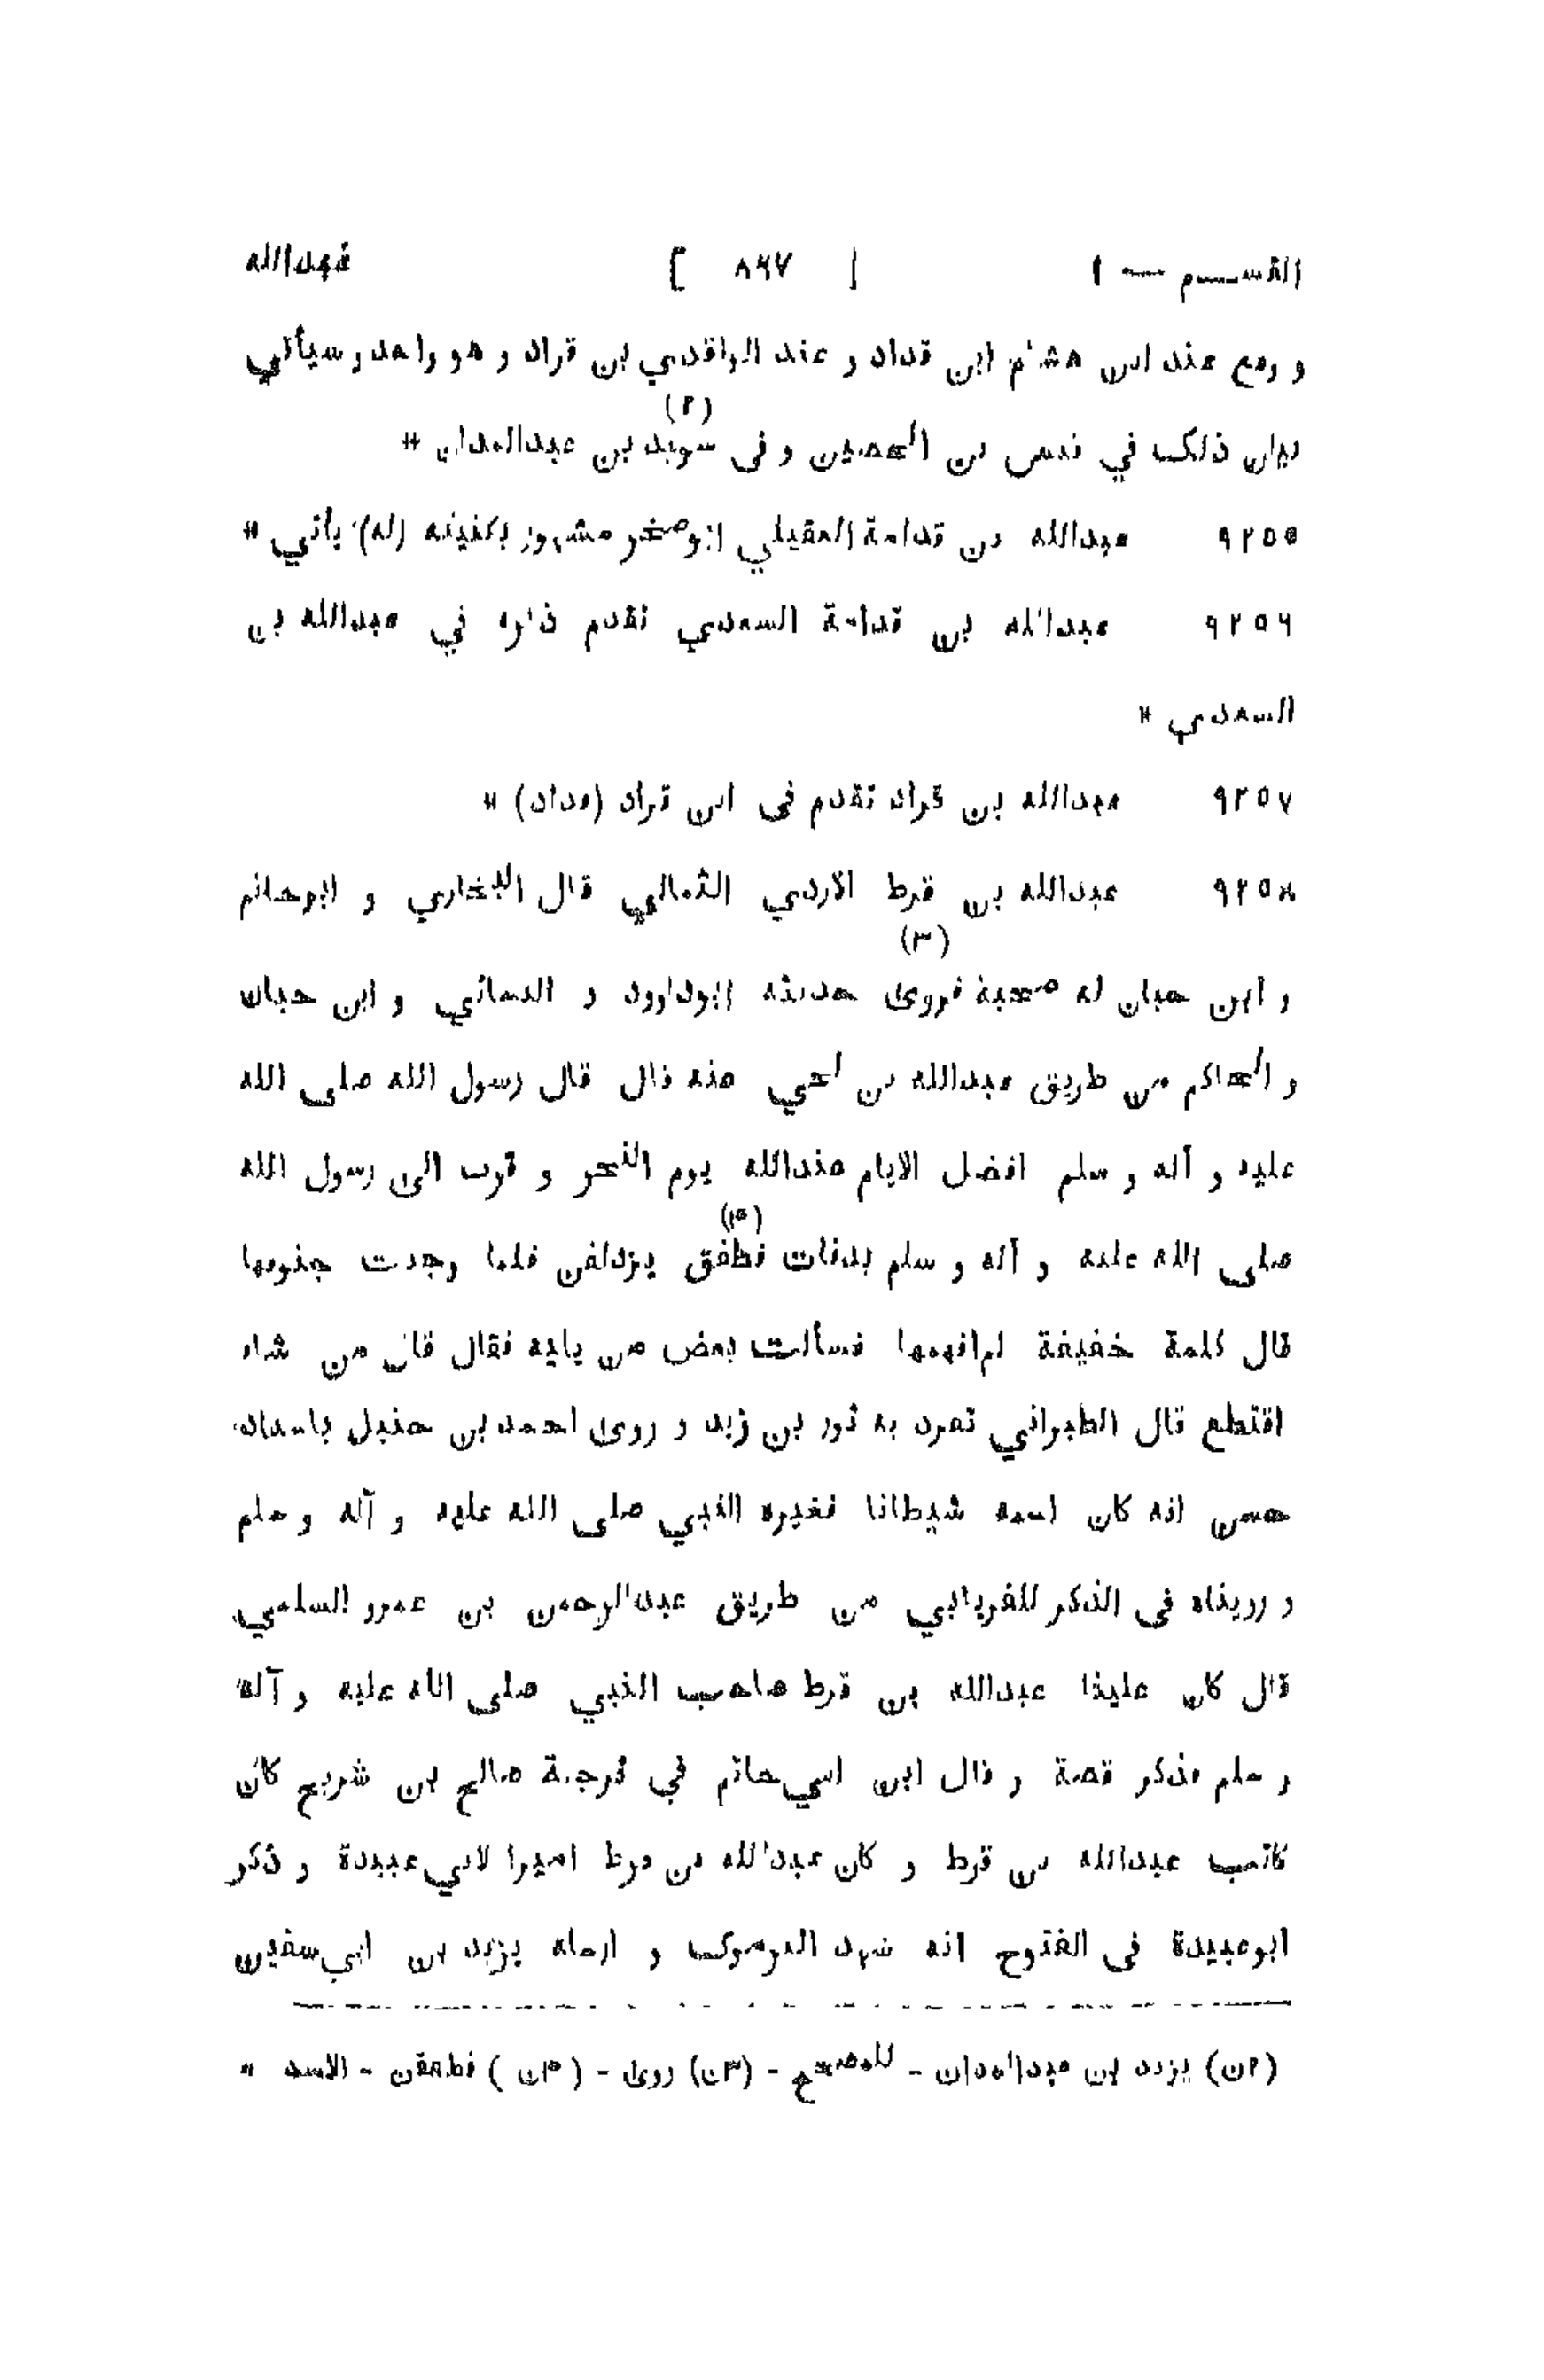 القســـم — ١ [ ٨٦٧ ] عبدالله
و وقع عند ابن هشام ابن قداد و عند الواقدي بن قراد و هو واحد و سيأتي
بيان ذلک في قيس بن الحصين و فى سويد (٢) بن عبدالمدان *
٩٢٥٥ عبدالله بن قدامة العقيلي ابوصخر مشهور بكنيته (له) يأتي *
٩٢٥٦ عبدالله بن قدامة السعدي تقدم ذكره في عبدالله بن
السعدي *
٩٢٥٧ عبدالله بن قراد تقدم فى ابن قراد (قداد) *
٩٢٥٨ عبدالله بن قرط الازدي الثمالي قال البخاري و ابوحاتم
و ابن حبان له صحبة فروى (٣) حديثه ابوداوود و النسائي و ابن حبان
و الحاكم من طريق عبدالله بن لحي عنه قال قال رسول الله صلى الله
عليه و آله و سلم افضل الايام عندالله يوم النحر و قرب الى رسول الله
صلى الله عليه و آله و سلم بدنات فطفق (٤) يزدلفن فلما وجدت جنوبها
قال كلمة خفيفة لم افهمها فسألت بعض من يليه فقال قال من شاء
اقتطع قال الطبراني تفرد به ثور بن زيد و روى احمد بن حنبل باسناد
حسن انه كان اسمه شيطانا فغيره النبي صلى الله عليه و آله و سلم
و رويناه فى الذكر للفريابي من طريق عبدالرحمن بن عمرو السلمي
قال كان علينا عبدالله بن قرط صاحب النبي صلى الله عليه و آله
و سلم فذكر قصة و قال ابن ابي حاتم في ترجمة صالح بن شريح كان
كاتب عبدالله بن قرط و كان عبدالله بن قرط اميرا لابي عبيدة و ذكر
ابوعبيدة فى الفتوح انه شهد اليرموک و ارسله يزيد بن ابي سفين
(٢ن) يزيد بن عبدالمدان - للمصحح - (٣ن) روى - (٤ن) فطفقن - الاسد *